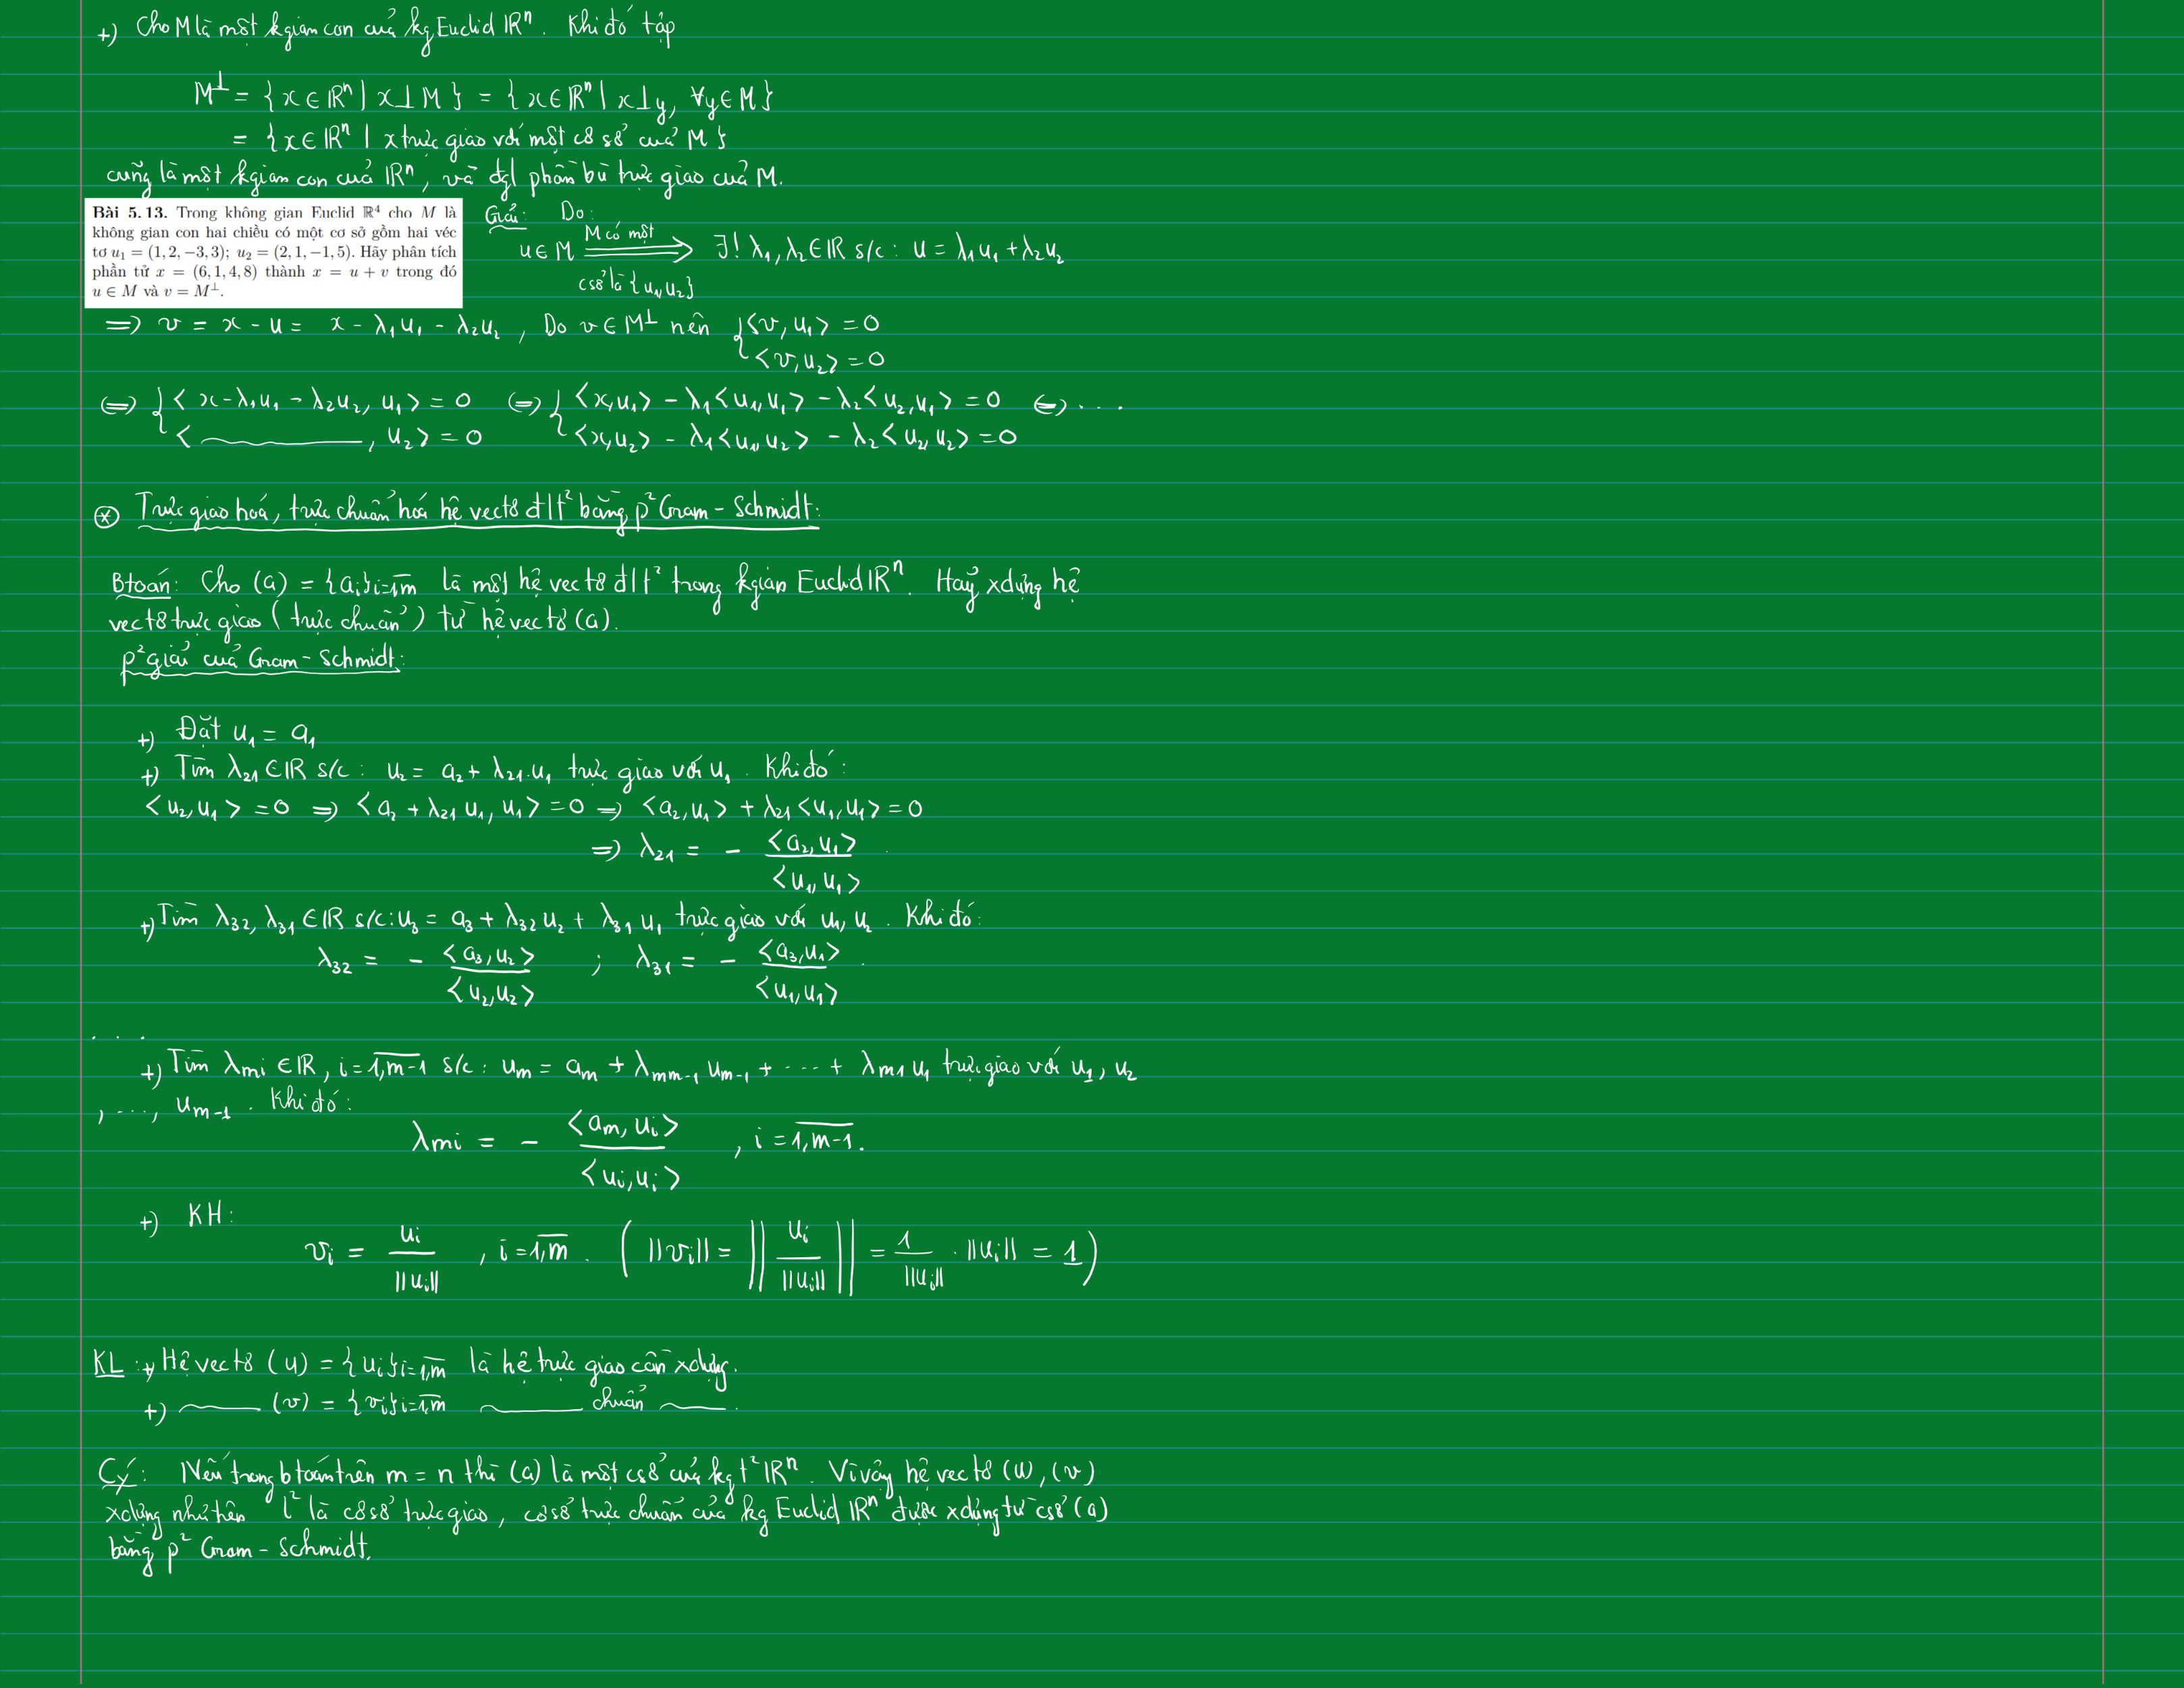 +) Cho M là một kgian con của kg Euclid ℝⁿ. Khi đó tập
M^⊥ = { x ∈ ℝⁿ | x ⊥ M } = { x ∈ ℝⁿ | x ⊥ y, ∀y ∈ M }
= { x ∈ ℝⁿ | x trực giao với một cơ sở của M }
cũng là một kgian con của ℝⁿ, và đgl phần bù trực giao của M.
Bài 5.13. Trong không gian Euclid ℝ⁴ cho M là
không gian con hai chiều có một cơ sở gồm hai véc
tơ u₁ = (1, 2, −3, 3); u₂ = (2, 1, −1, 5). Hãy phân tích
phần tử x = (6, 1, 4, 8) thành x = u + v trong đó
u ∈ M và v = M^⊥.
Giải: Do:
u ∈ M ⟹ (M có một csở là {u₁, u₂}) ∃! λ₁, λ₂ ∈ ℝ s/c: u = λ₁u₁ + λ₂u₂
⟹ v = x - u = x - λ₁u₁ - λ₂u₂, Do v ∈ M^⊥ nên { <v, u₁> = 0
<v, u₂> = 0
⟺ { <x - λ₁u₁ - λ₂u₂, u₁> = 0 ⟺ { <x, u₁> - λ₁<u₁, u₁> - λ₂<u₂, u₁> = 0 ⟺ ...
< ———, u₂> = 0 <x, u₂> - λ₁<u₁, u₂> - λ₂<u₂, u₂> = 0
⊛ Trực giao hoá, trực chuẩn hoá hệ vectơ đlt² bằng p² Gram - Schmidt:
Btoán: Cho (a) = {aᵢ}ᵢ₌1,m̅ là một hệ vectơ đlt² trong kgian Euclid ℝⁿ. Hãy xdựng hệ
vectơ trực giao (trực chuẩn) từ hệ vectơ (a).
p² giải của Gram - Schmidt:
+) Đặt u₁ = a₁
+) Tìm λ₂₁ ∈ ℝ s/c: u₂ = a₂ + λ₂₁.u₁ trực giao với u₁. Khi đó:
<u₂, u₁> = 0 ⟹ <a₂ + λ₂₁ u₁, u₁> = 0 ⟹ <a₂, u₁> + λ₂₁<u₁, u₁> = 0
⟹ λ₂₁ = - <a₂, u₁> / <u₁, u₁>.
+) Tìm λ₃₂, λ₃₁ ∈ ℝ s/c: u₃ = a₃ + λ₃₂ u₂ + λ₃₁ u₁ trực giao với u₁, u₂. Khi đó:
λ₃₂ = - <a₃, u₂> / <u₂, u₂> ; λ₃₁ = - <a₃, u₁> / <u₁, u₁>.
...
+) Tìm λₘᵢ ∈ ℝ, i = 1,m-1 s/c: uₘ = aₘ + λₘₘ₋₁ uₘ₋₁ + ... + λₘ₁ u₁ trực giao với u₁, u₂
, ..., uₘ₋₁. Khi đó:
λₘᵢ = - <aₘ, uᵢ> / <uᵢ, uᵢ> , i = 1,m-1.
+) KH:
vᵢ = uᵢ / ||uᵢ|| , i = 1,m. ( ||vᵢ|| = || uᵢ / ||uᵢ|| || = 1 / ||uᵢ|| . ||uᵢ|| = 1 )
KL: +) Hệ vectơ (u) = {uᵢ}ᵢ₌1,m là hệ trực giao cần xdựng.
+) ——— (v) = {vᵢ}ᵢ₌1,m ——— chuẩn ———.
Cý: Nếu trong btoán trên m = n thì (a) là một csở của kgt² ℝⁿ. Vì vậy hệ vectơ (u), (v)
xdựng như trên l² là cơ sở trực giao, cơ sở trực chuẩn của kg Euclid ℝⁿ được xdựng từ csở (a)
bằng p² Gram - Schmidt.